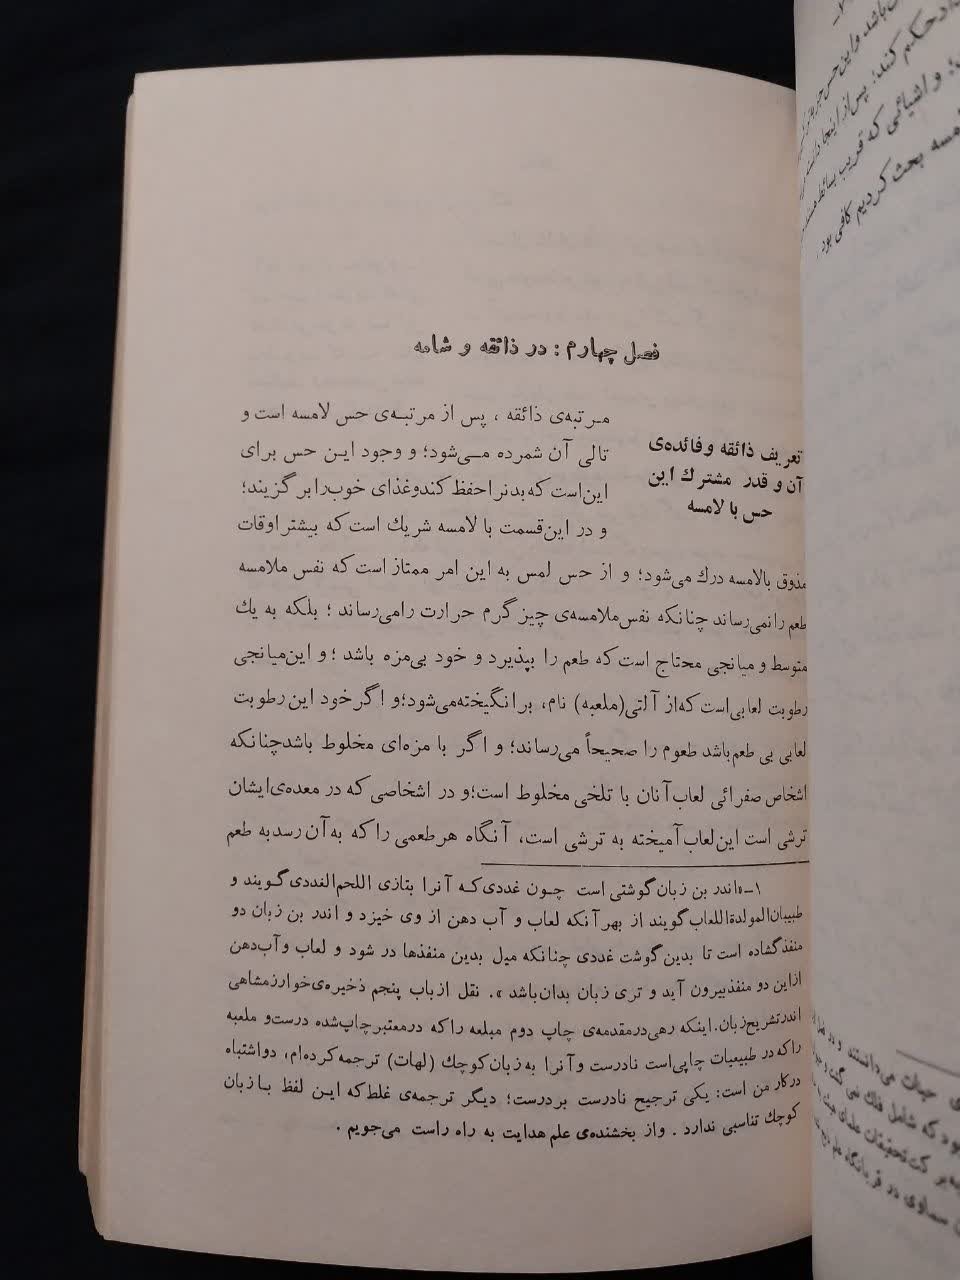 فصل چهارم : در ذائقه و شامه
تعریف ذائقه و فائده‌ی
آن و قدر مشترك این
حس با لامسه
مـرتبه‌ی ذائقه ، پس از مرتبـه‌ی حس لامسه است و
تالی آن شمرده مـی‌شود؛ و وجود ایـن حس برای
این‌است که‌بدنراحفظ کندوغذای خوب‌رابرگزیند؛
و در این‌قسمت با لامسه شریك است‌که بیشتراوقات
مذوق بالامسه درك می‌شود؛ و از حس لمس به این امر ممتاز است‌که نفس ملامسه
طعم رانمی‌رساند چنانکه نفس‌ملامسه‌ی چیز گرم حرارت رامی‌رساند ؛ بلکه به یك
متوسط و میانجی محتاج است‌که طعم را بپذیرد و خود بی‌مزه باشد ؛ و این‌میانجی
رطوبت لعابی‌است که‌از آلتی(ملعبه) نام، برانگیخته‌می‌شود؛و اگر خود این رطوبت
لعابی بی طعم‌باشد طعوم را صحیحاً می‌رساند؛ و اگر با مزه‌ای مخلوط باشدچنانکه
اشخاص صفرائی لعاب‌آنان با تلخی مخلوط است؛و در اشخاصی که در معده‌ی‌ایشان
ترشی است این‌لعاب‌آمیخته به ترشی است، آنگاه هرطعمی راکه به‌آن رسدبه طعم
۱ـ «اندر بن زبان‌گوشتی است چـون غددی‌کـه آنرا بتازی اللحم‌الغددی‌گـویند و
طبیبان‌المولدةاللعاب‌گویند از بهرآنکه لعاب و آب دهن از وی خیزد و اندر بن زبان دو
منفذگشاده است تا بدین‌گوشت غددی چنانکه میل بدین منفذها در شود و لعاب وآب‌دهن
ازاین دو منفذبیرون آید و تری زبان بدان‌باشد ». نقل ازباب پنجم ذخیره‌ی‌خوارزمشاهی
اندرتشریح‌زبان.اینکه رهی‌درمقدمه‌ی چاپ دوم مبلعه راکه درمعتبرچاپ‌شده درست‌و ملعبه
راکه‌در طبیعیات چاپی‌است نادرست وآنرا به‌زبان‌کوچك (لهات) ترجمه‌کرده‌ام، دواشتباه
درکار من است: یکی ترجیح نادرست بردرست؛ دیگر ترجمه‌ی غلط‌که ایـن لفظ بـازبان
کوچك تناسبی ندارد . واز بخشنده‌ی علم هدایت به راه راست می‌جویم .
باشد و این حس
حکم کند؛ پس‌از اینجا
و اشیائی که قریب بسائط
بحث کردیم کافی بود .
می‌دانستند و در
که شامل فلك نمی
سماوی در